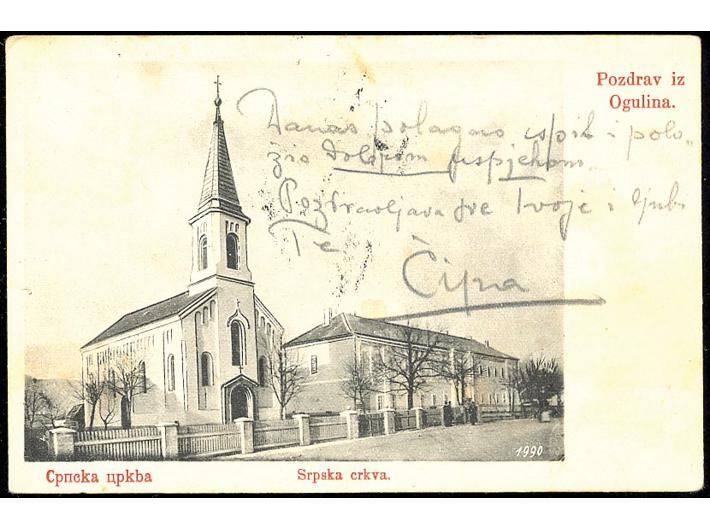 Pozdrav iz
Ogulina.
Danas polagao ispit i polo„
žio dobrim uspjehom.
Pozdravlja sve tvoje i ljubi
Te
Čipa
1990
Српска црква
Srpska crkva.